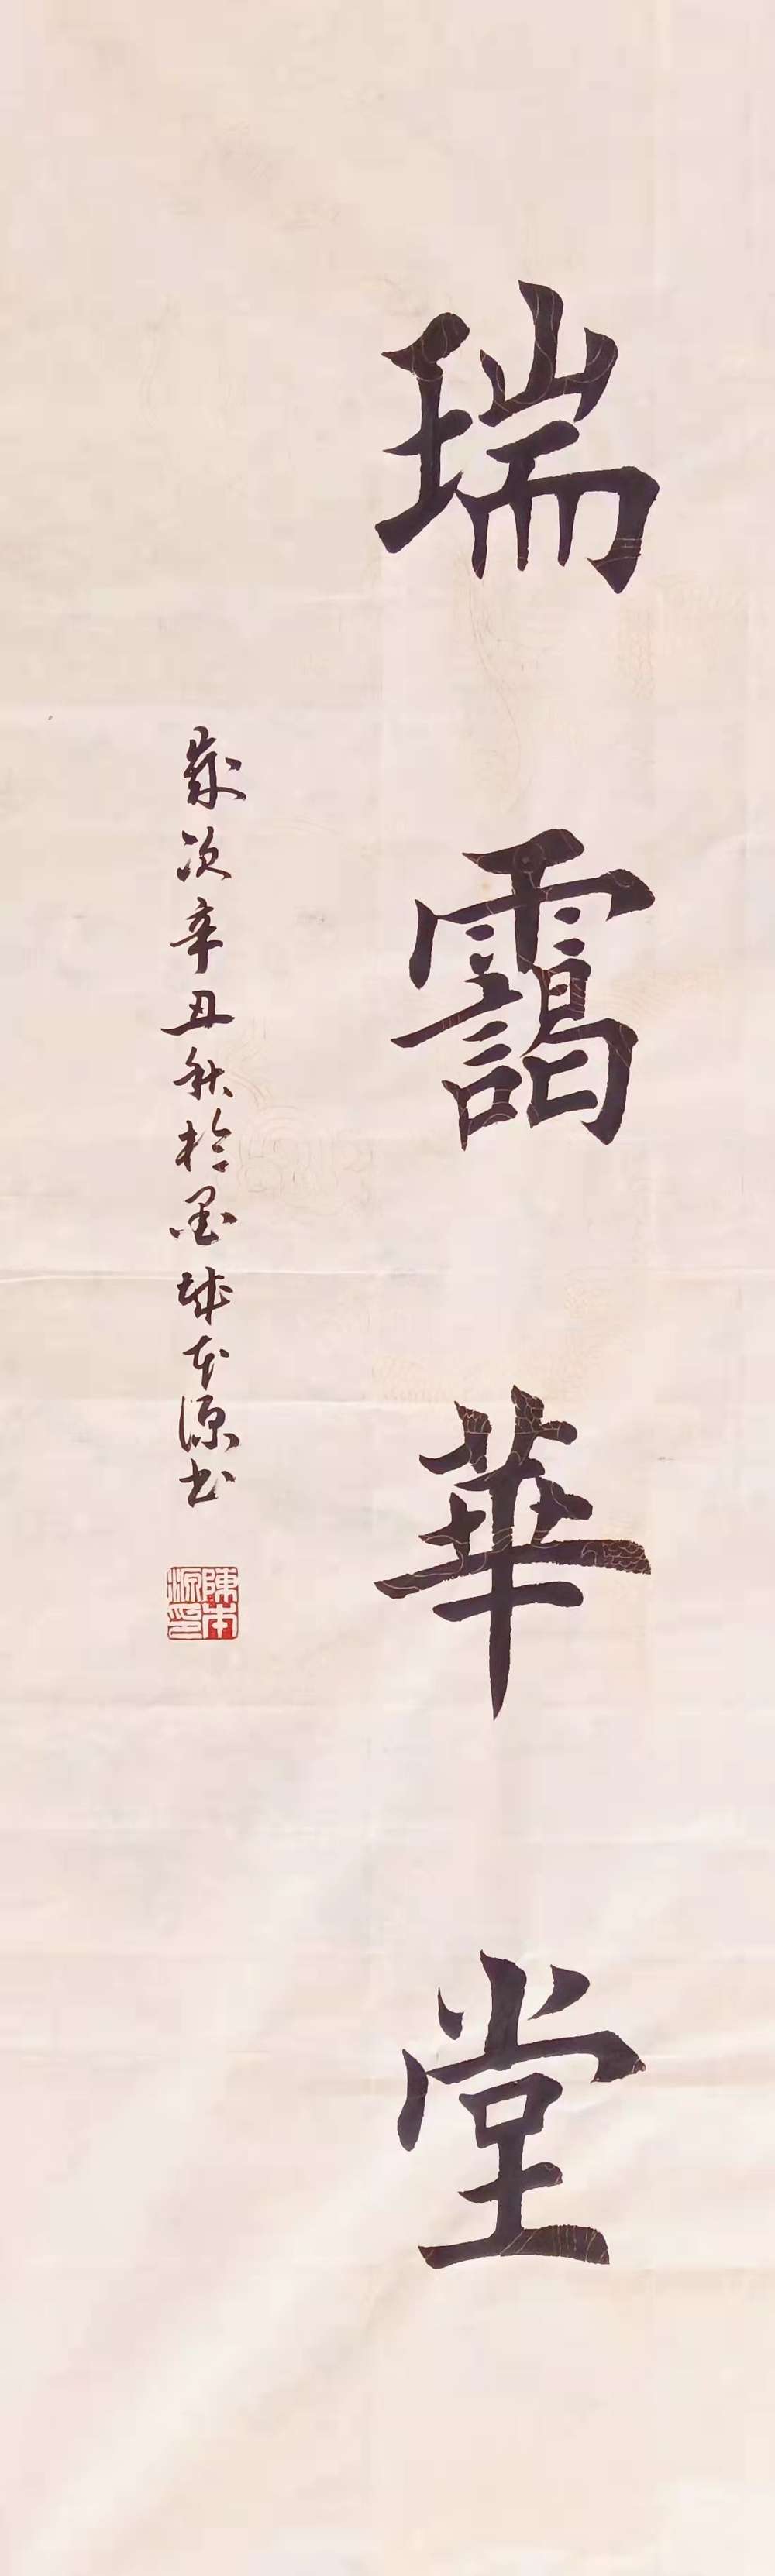 瑞靄華堂
歲次辛丑秋於墨城本源书
陳本源印